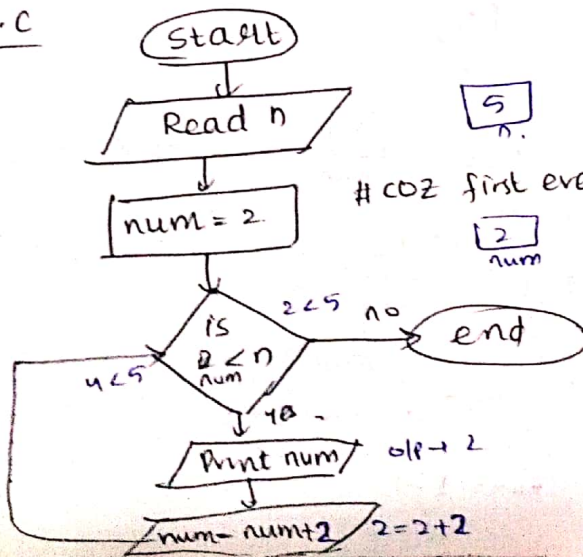 .C
Start
Read n
5
n.
num = 2.
# coz first eve
2
num
is
num < n
2<5
no
end
4<5
yes
Print num
o/p → 2
num = num+2
2=2+2